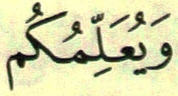 وَيُعَلِّمُكُم